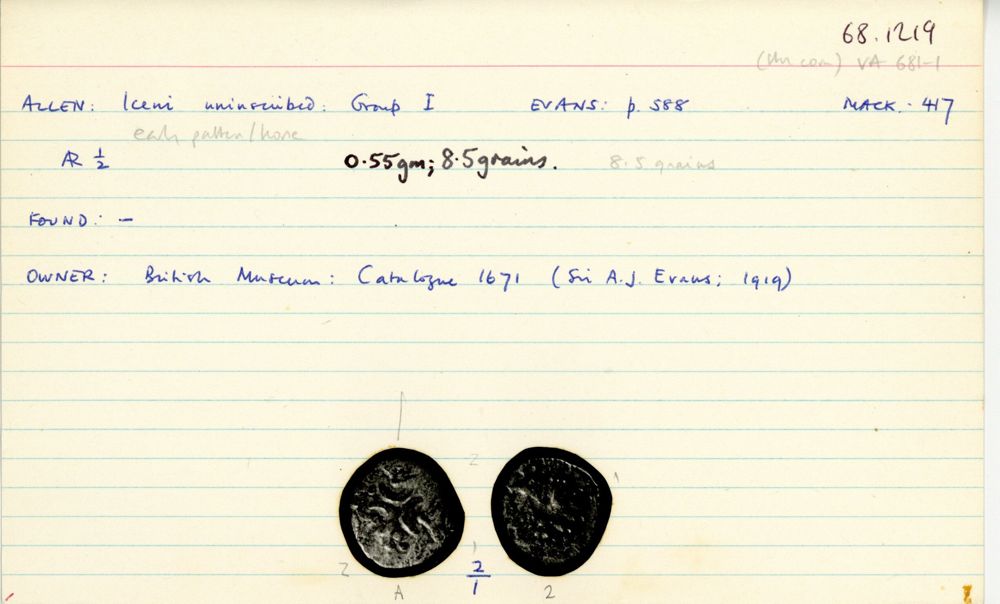 68.1219
(this coin) VA 681-1
ALLEN: Iceni uninscribed: Group I EVANS: p. 588 MACK: 417
early pattern/horse
AR ½ 0.55gm; 8.5grains. 8.5 grains
FOUND: -
OWNER: British Museum: Catalogue 1671 (Sir A.J. Evans; 1919)
2
1
2 1
A 2/1 2